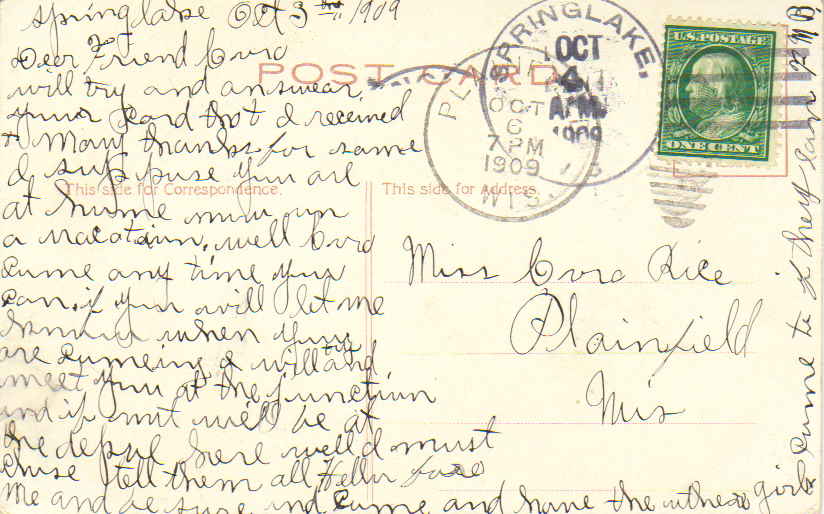 Springlake Oct 3 rd 1909
Dear Friend Cora
will try and answear
your card that I received
Many thanks for same
I suppose you are
at home now on
a vacatain, well Cora
come any time you
can, if you will let me
know when you
are comeing I will
meet you at the junction
and if not will be at
the depot here well I must
close tell them all Hello for
me and be sure and come and have the other girls
come to if they can
POST CARD
This side for Correspondence.
This side for Address.
SPRINGLAKE,
OCT
4
1909
PL
OCT
6
7 PM
1909
WIS.
U.S. POSTAGE
ONE CENT
Miss Cora Rice
Plainfield
Wis